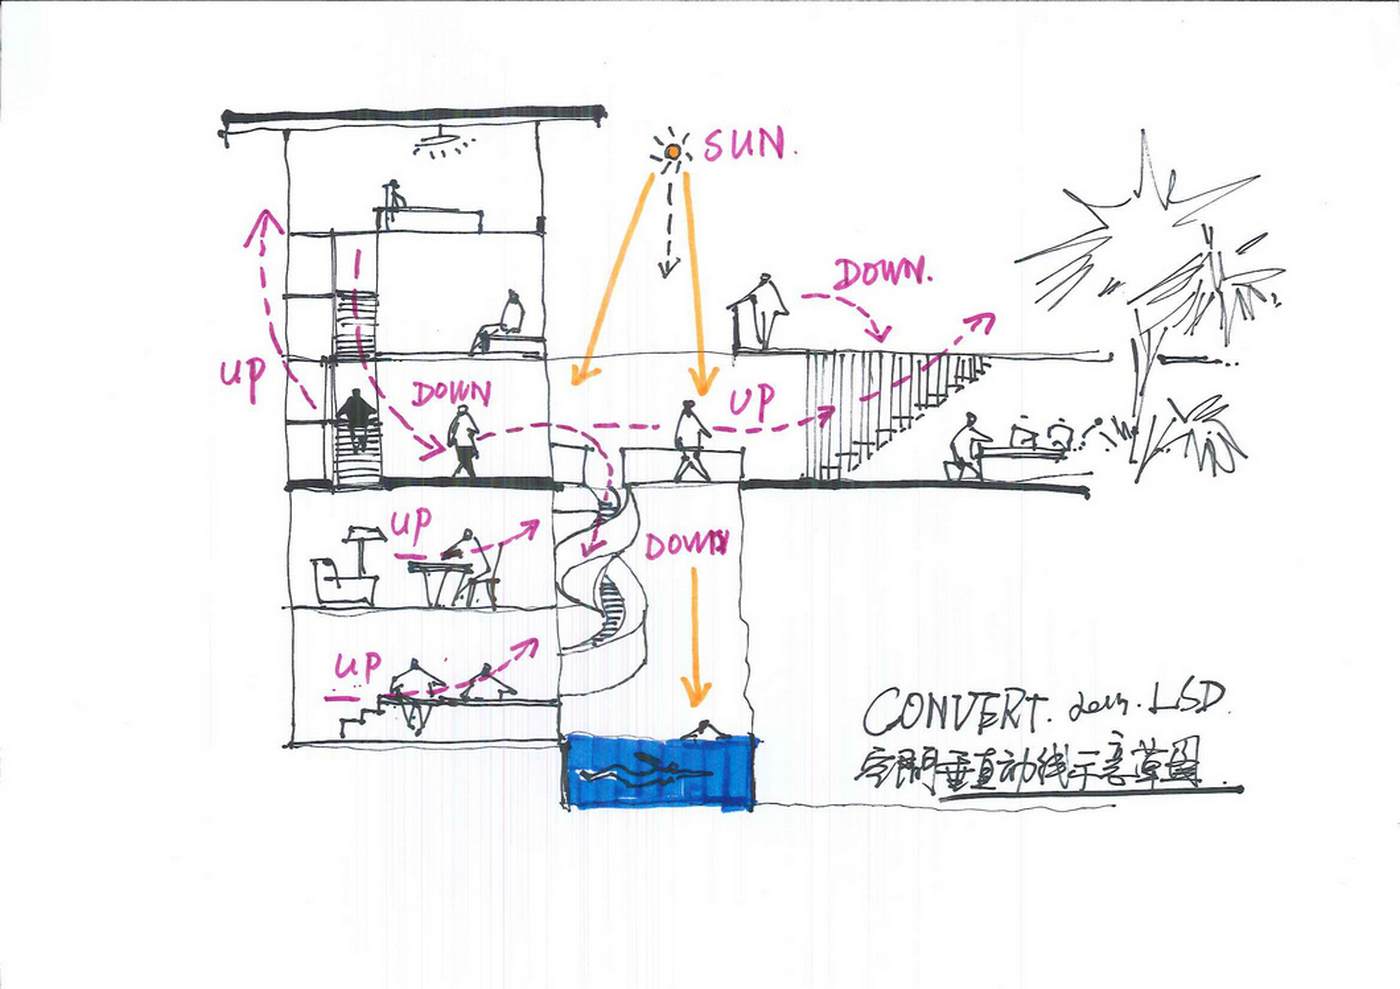 SUN.
DOWN.
UP
DOWN
UP
UP
DOWN
UP
CONVERT. LSD
空間垂直动线示意草图